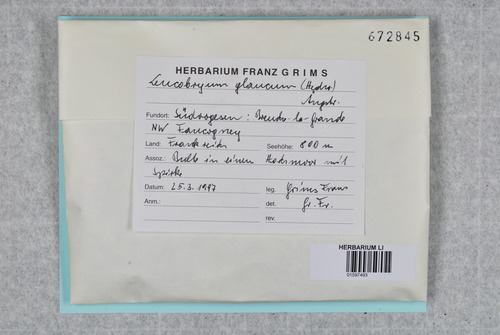 672845
HERBARIUM FRANZ GRIMS
Leucobryum glaucum (Hedw.)
Angstr.
Fundort: Südvogesen: Beulo-la-grande
NW Faucogney
Land: Frankreich Seehöhe: 800 m
Assoz.: Bulte in einem Hochmoor mit
Spirke
Datum: 25.3.1997 leg. Grims Franz
Anm.: det. Gr. Fr.
rev.
HERBARIUM LI
01597493